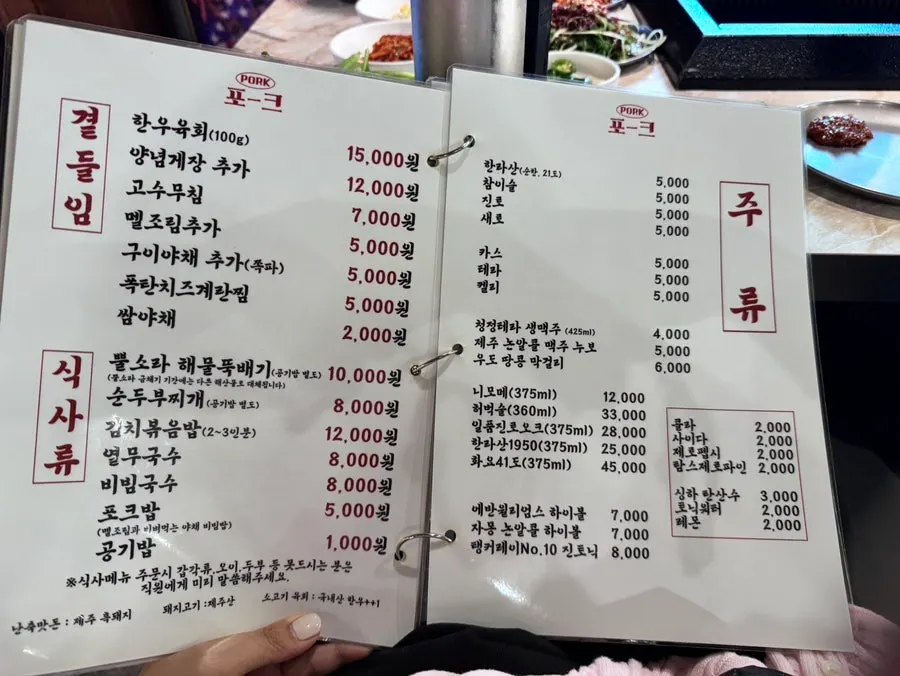 PORK
포크
곁들임
한우육회(100g) 15,000원
양념게장 추가 12,000원
고수무침 7,000원
멜조림추가 5,000원
구이야채 추가(쪽파) 5,000원
폭탄치즈계란찜 5,000원
쌈야채 2,000원
식사류
뿔소라 해물뚝배기(공기밥 별도) 10,000원
(뿔소라 금채기 기간에는 다른 해산물로 대체됩니다)
순두부찌개(공기밥 별도) 8,000원
김치볶음밥(2~3인분) 12,000원
열무국수 8,000원
비빔국수 8,000원
포크밥 5,000원
(멜조림과 비벼먹는 야채 비빔밥)
공기밥 1,000원
※식사메뉴 주문시 갑각류,오이,두부 등 못드시는 분은
직원에게 미리 말씀해주세요.
난축맛돈 : 제주 흑돼지 돼지고기 : 제주산 소고기 육회 : 국내산 한우++1
PORK
포크
주류
한라산(순한, 21도) 5,000
참이슬 5,000
진로 5,000
새로 5,000
카스 5,000
테라 5,000
켈리 5,000
청정테라 생맥주 (425ml) 4,000
제주 논알콜 맥주 누보 5,000
우도 땅콩 막걸리 6,000
니모메(375ml) 12,000
허벅술(360ml) 33,000
일품진로오크(375ml) 28,000
한라산1950(375ml) 25,000
화요41도(375ml) 45,000
에반윌리엄스 하이볼 7,000
자몽 논알콜 하이볼 7,000
탱커레이No.10 진토닉 8,000
콜라 2,000
사이다 2,000
제로펩시 2,000
탐스제로파인 2,000
싱하 탄산수 3,000
토닉워터 2,000
레몬 2,000